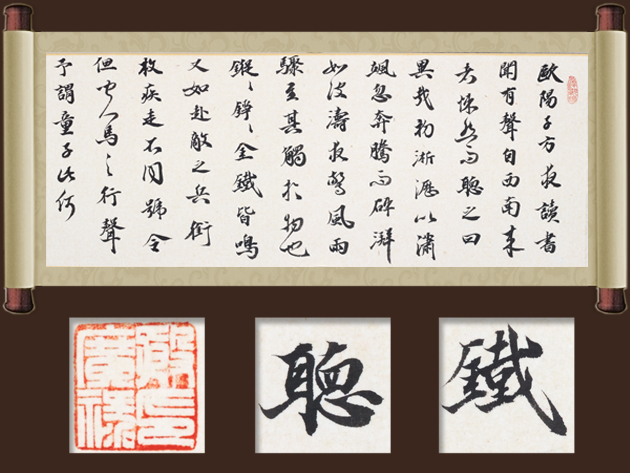 歐陽子方夜讀書
聞有聲自西南來
者悚然而聽之曰
異哉初淅瀝以瀟
颯忽奔騰而砰湃
如波濤夜驚風雨
驟至其觸於物也
鏦〻錚〻金鐵皆鳴
又如赴敵之兵銜
枚疾走不聞號令
但聞人馬之行聲
予謂童子此何
聽
鐵